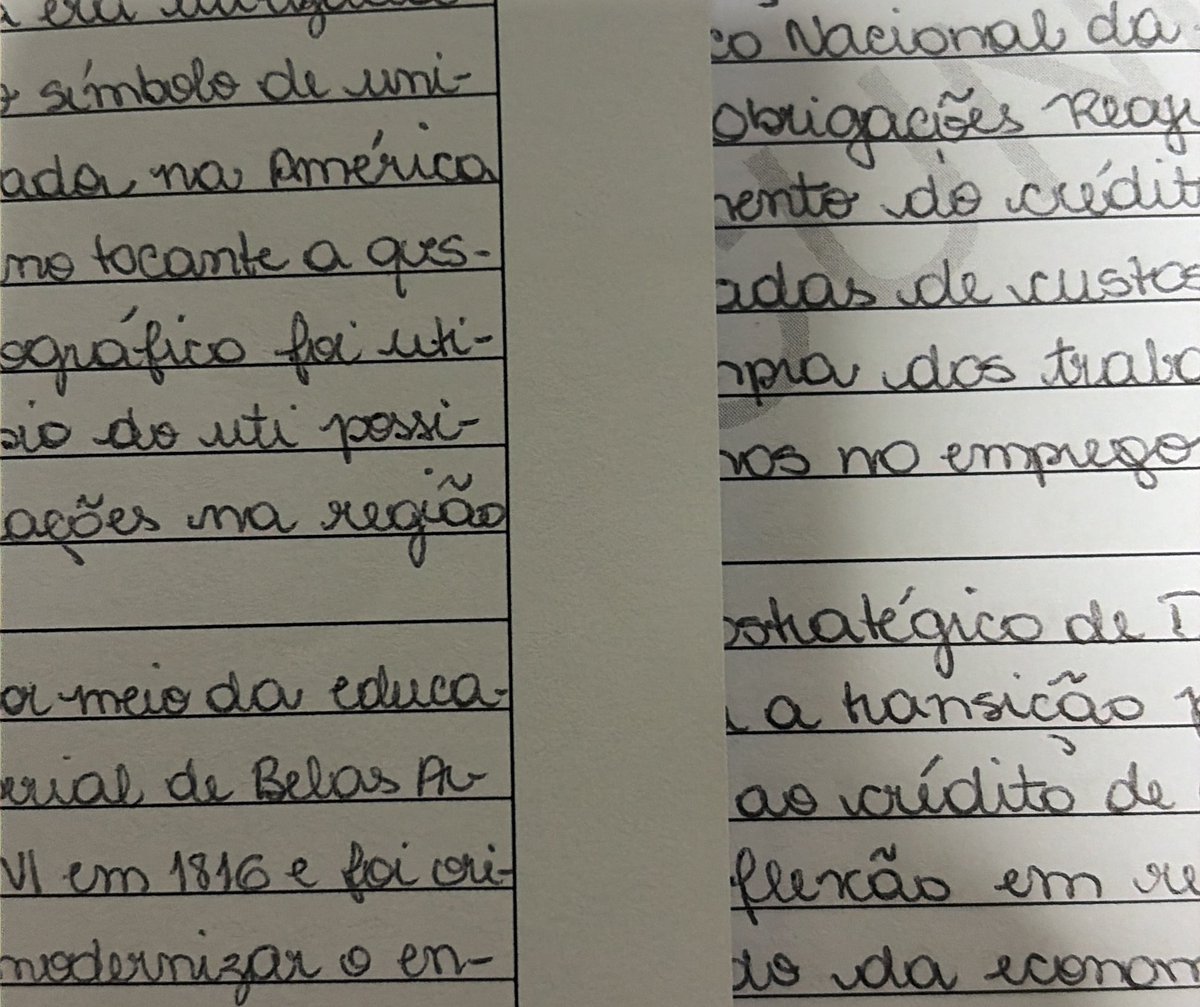 símbolo de uni-
ada na América
no tocante a ques-
ográfico foi uti-
pio do uti possi-
ações na região
or meio da educa-
erial de Belas Ar-
VI em 1816 e foi cri-
modernizar o en-
co Nacional da
Obrigações Reaj
mento do crédit
adas de custos
mpra dos traba
vos no emprego
estratégico de
a transição
ao crédito de
flexão em re
do da econom